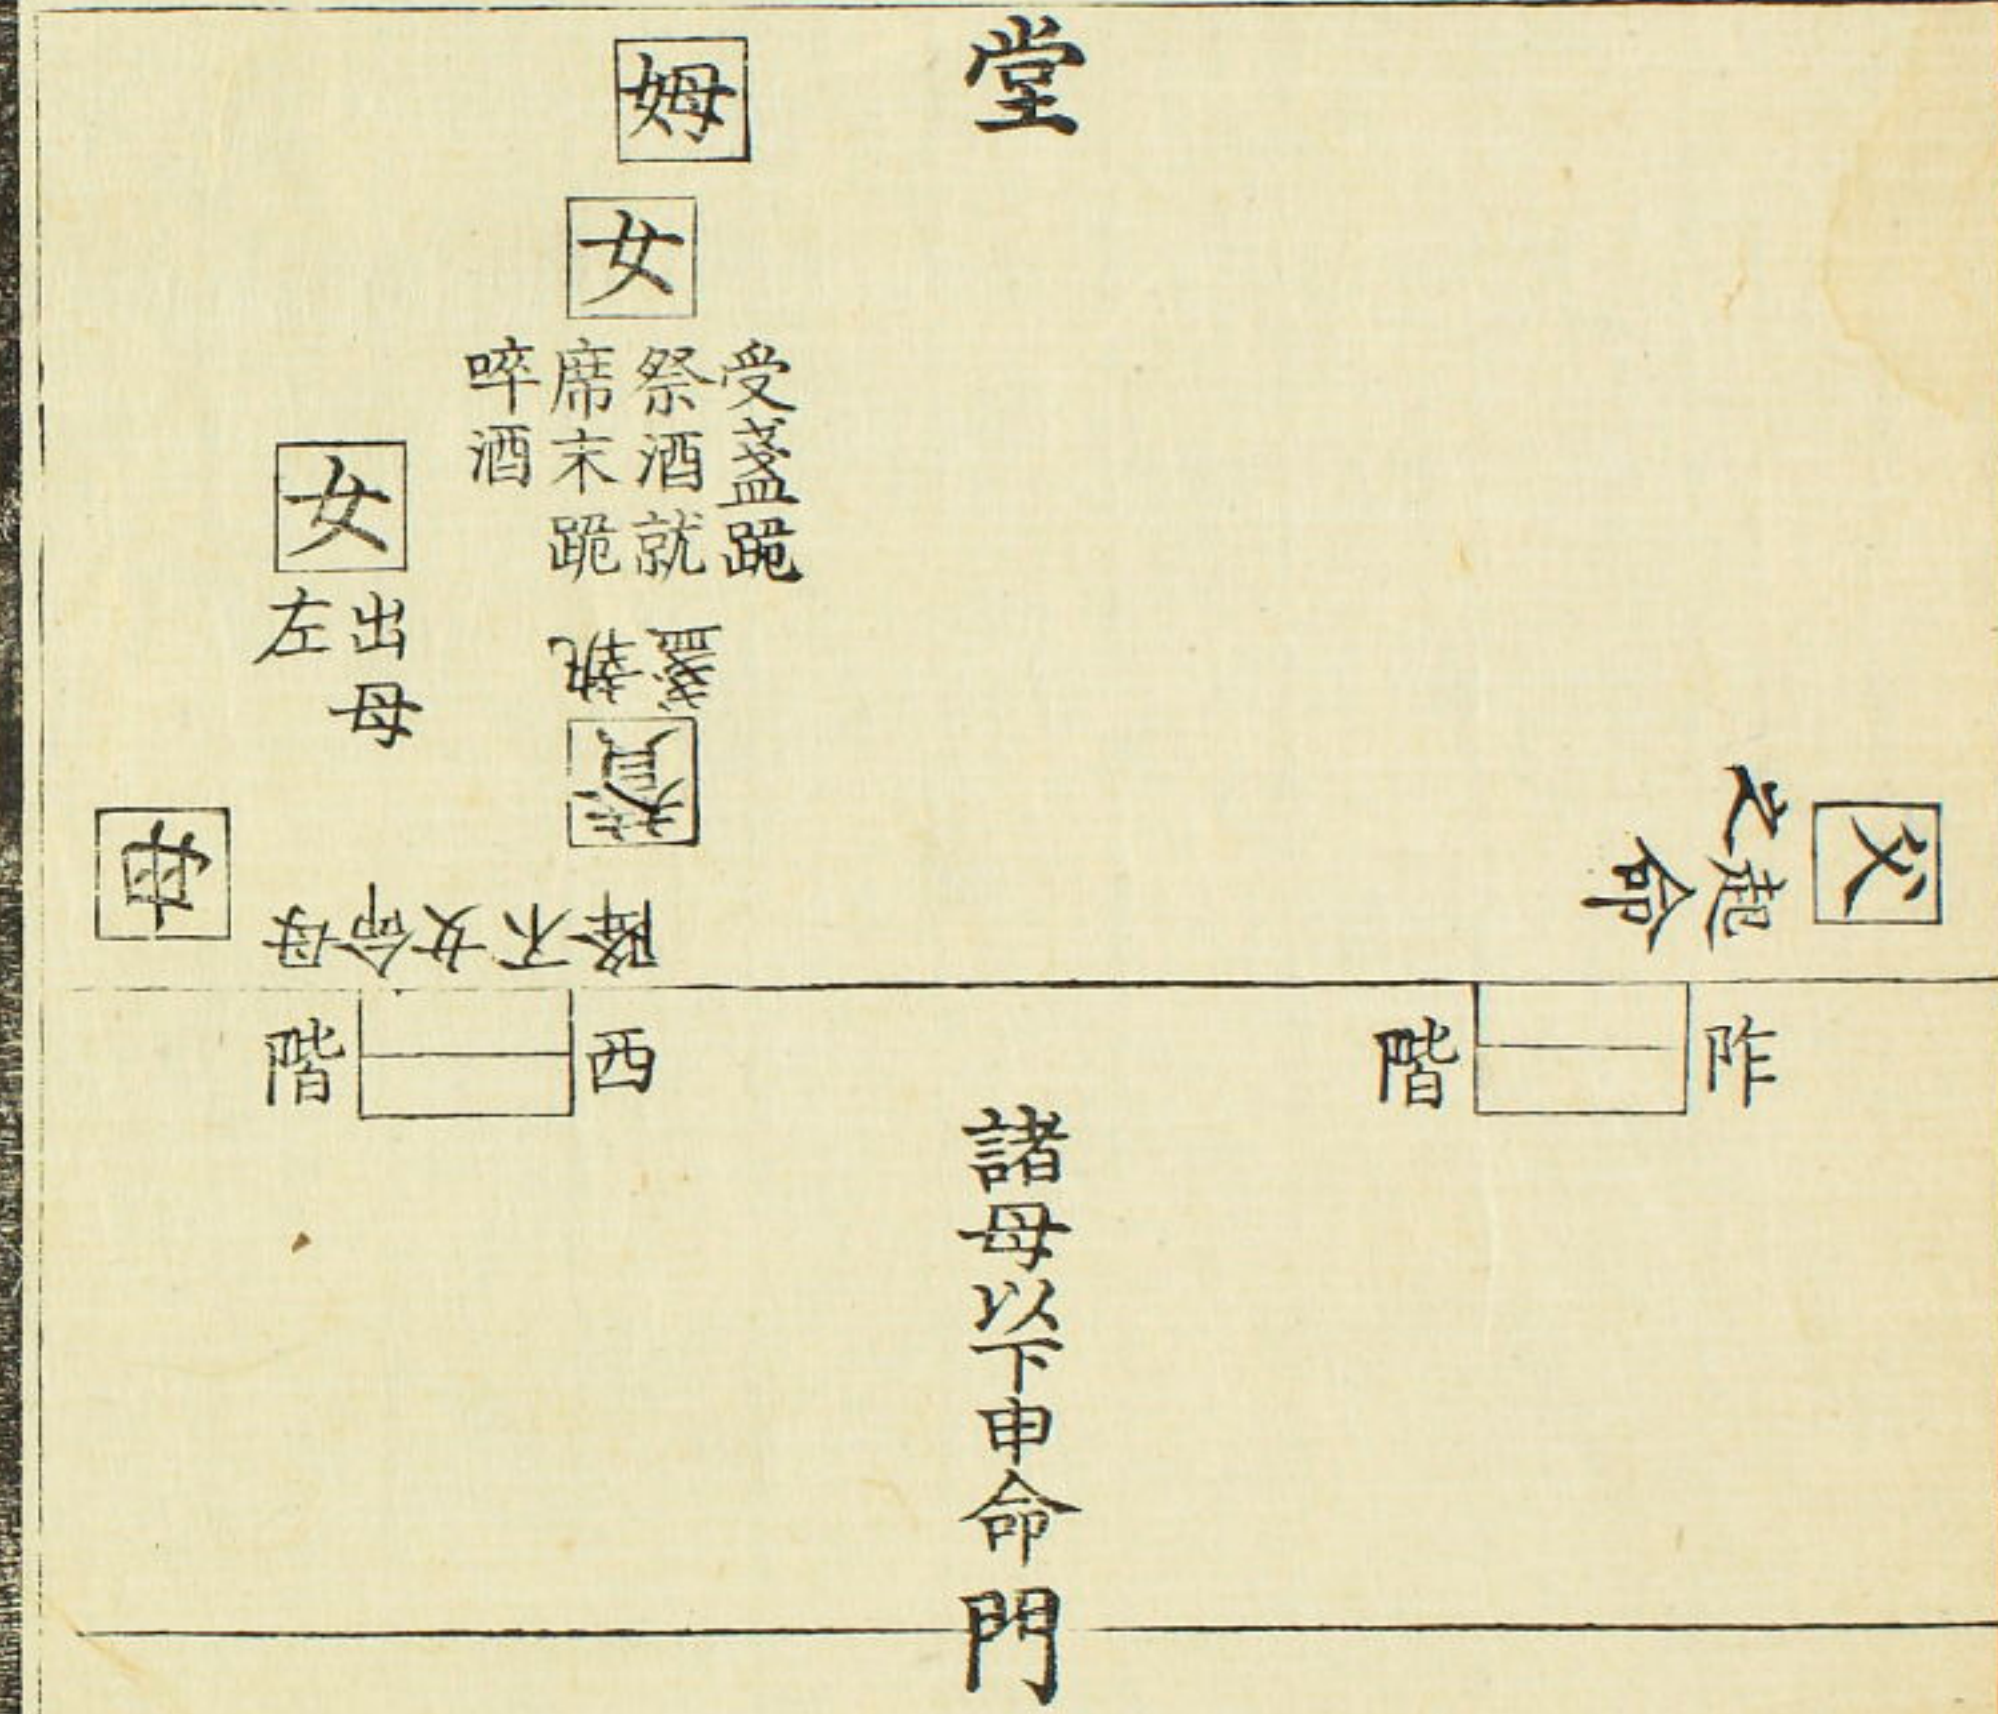 堂
姆
女
受盞跪
祭酒就
席末跪
啐酒
執盞
賛
女
出母
左
父
起命
之
母
母命女不降
阼階
西階
諸母以下申命
門